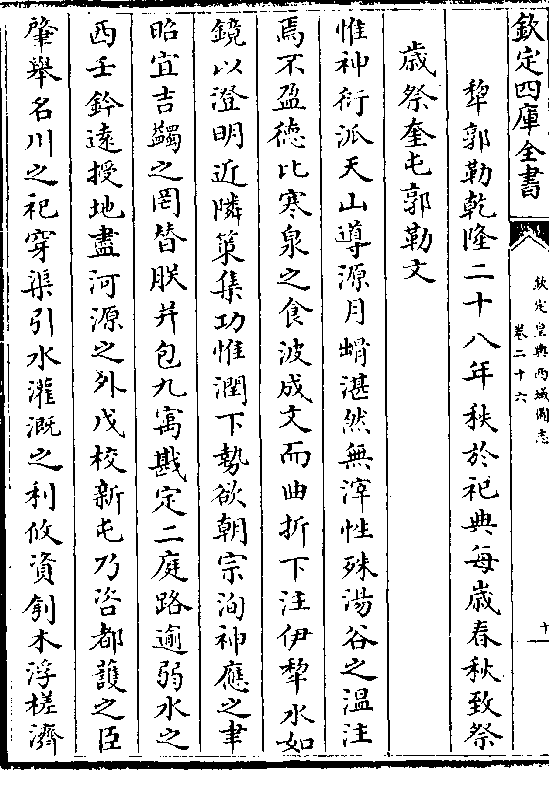 欽定四庫全書
欽定皇輿西域圖志
卷二十六
十
犂郭勒乾隆二十八年秩於祀典每歲春秋致祭
歲祭奎屯郭勒文
惟神衍派天山導源月𧌒湛然無滓性殊湯谷之溫注
焉不盈德比寒泉之食波成文而曲折下注伊犂水如
鏡以澄明近隣策集功惟潤下勢欲朝宗洵神應之聿
昭宜吉蠲之罔替朕幷包九㝢戡定二庭路逾弱水之
西壬鈐遠授地盡河源之外戊校新屯乃咨都護之臣
肇舉名川之祀穿渠引水灌溉之利攸資刳木浮槎濟